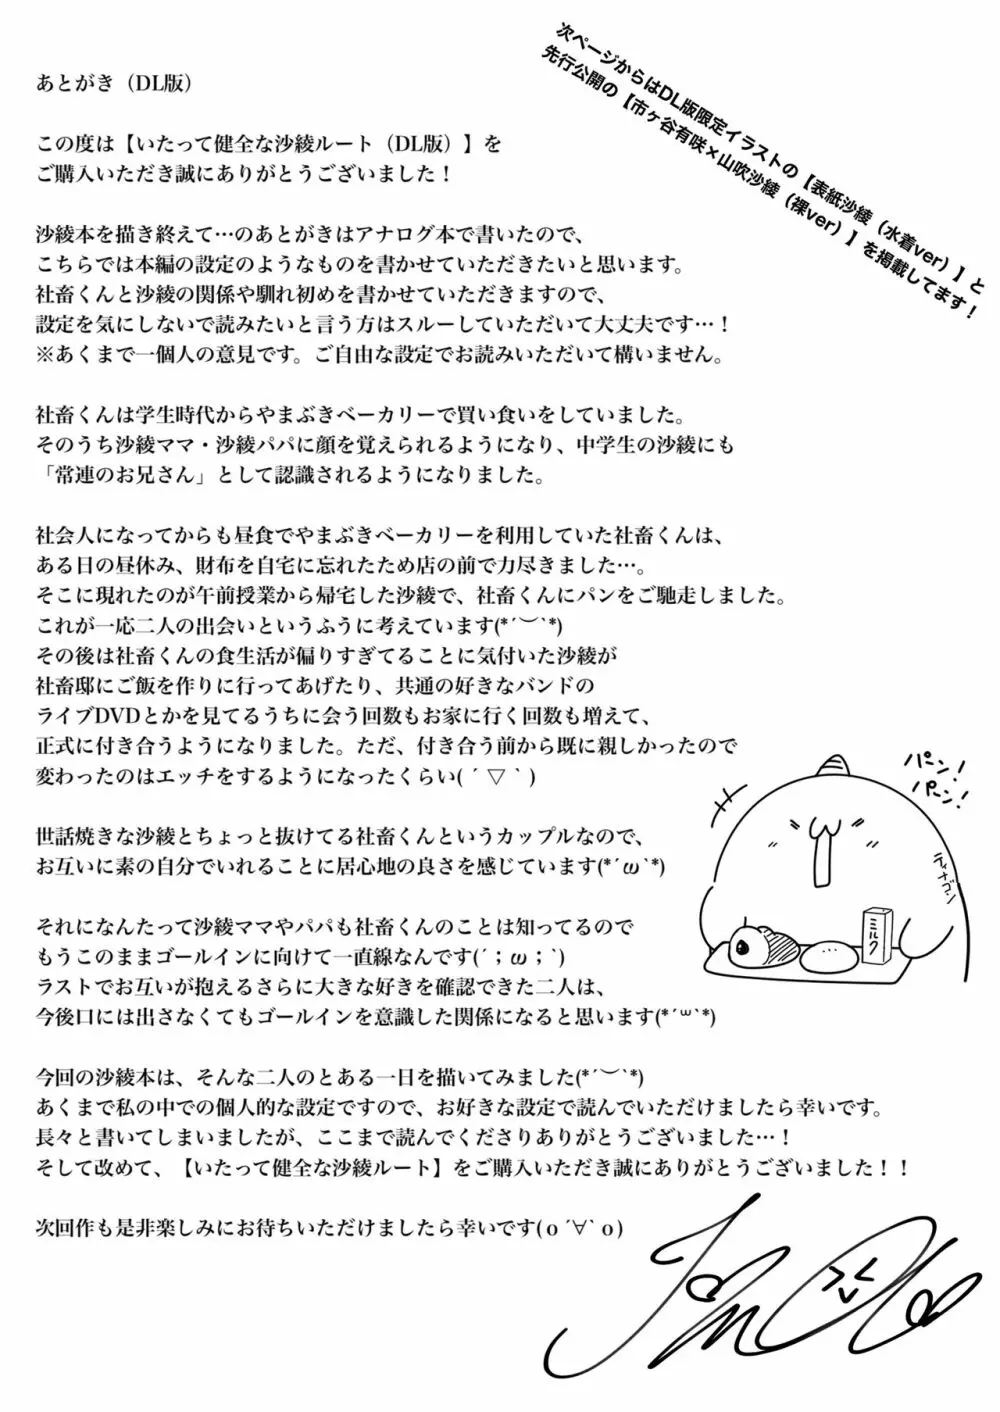 あとがき（DL版）
次ページからはDL版限定イラストの【表紙沙綾（水着ver）】と
先行公開の【市ヶ谷有咲×山吹沙綾（裸ver）】を掲載してます！
この度は【いたって健全な沙綾ルート（DL版）】を
ご購入いただき誠にありがとうございました！
沙綾本を描き終えて…のあとがきはアナログ本で書いたので、
こちらでは本編の設定のようなものを書かせていただきたいと思います。
社畜くんと沙綾の関係や馴れ初めを書かせていただきますので、
設定を気にしないで読みたいと言う方はスルーしていただいて大丈夫です…！
※あくまで一個人の意見です。ご自由な設定でお読みいただいて構いません。
社畜くんは学生時代からやまぶきベーカリーで買い食いをしていました。
そのうち沙綾ママ・沙綾パパに顔を覚えられるようになり、中学生の沙綾にも
「常連のお兄さん」として認識されるようになりました。
社会人になってからも昼食でやまぶきベーカリーを利用していた社畜くんは、
ある日の昼休み、財布を自宅に忘れたため店の前で力尽きました…。
そこに現れたのが午前授業から帰宅した沙綾で、社畜くんにパンをご馳走しました。
これが一応二人の出会いというふうに考えています(*´︶`*)
その後は社畜くんの食生活が偏りすぎてることに気付いた沙綾が
社畜邸にご飯を作りに行ってあげたり、共通の好きなバンドの
ライブDVDとかを見てるうちに会う回数もお家に行く回数も増えて、
正式に付き合うようになりました。ただ、付き合う前から既に親しかったので
変わったのはエッチをするようになったくらい( ´ ▽ ` )
世話焼きな沙綾とちょっと抜けてる社畜くんというカップルなので、
お互いに素の自分でいれることに居心地の良さを感じています(*´ω`*)
それになんたって沙綾ママやパパも社畜くんのことは知ってるので
もうこのままゴールインに向けて一直線なんです(´；ω；`)
ラストでお互いが抱えるさらに大きな好きを確認できた二人は、
今後口には出さなくてもゴールインを意識した関係になると思います(*´꒳`*)
今回の沙綾本は、そんな二人のとある一日を描いてみました(*´︶`*)
あくまで私の中での個人的な設定ですので、お好きな設定で読んでいただけましたら幸いです。
長々と書いてしまいましたが、ここまで読んでくださりありがとうございました…！
そして改めて、【いたって健全な沙綾ルート】をご購入いただき誠にありがとうございました！！
次回作も是非楽しみにお待ちいただけましたら幸いです(ｏ´∀`ｏ)
パーン！
パーン！
ミルク